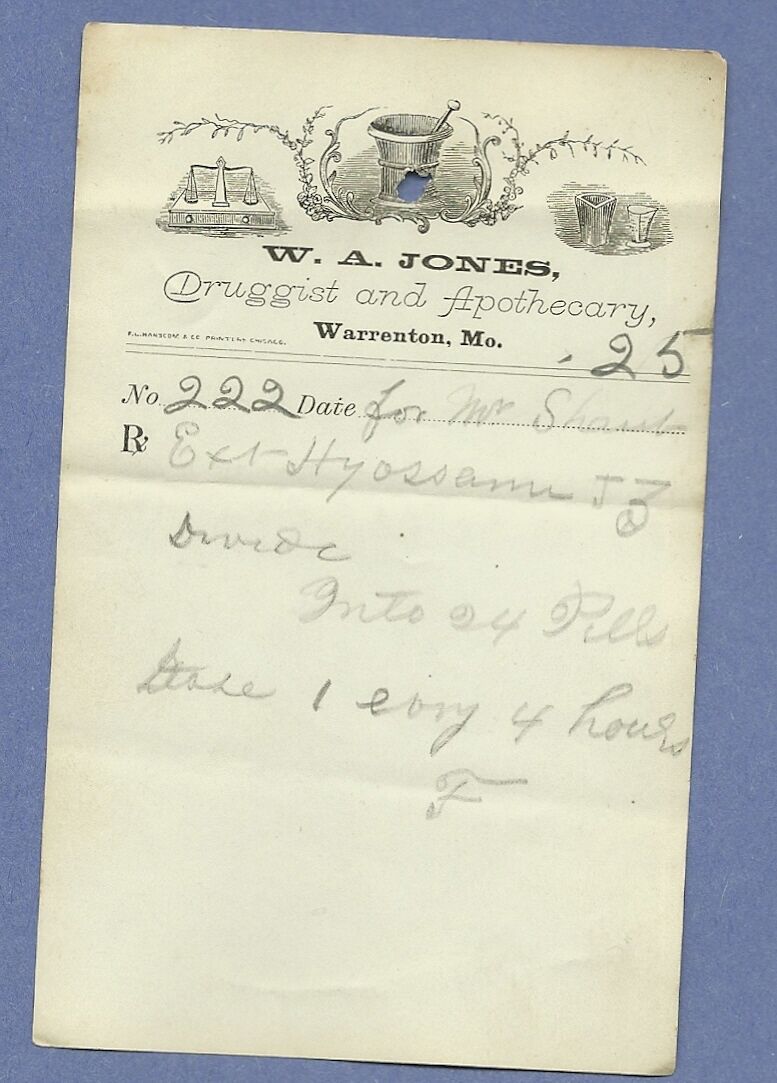 W. A. JONES,
Druggist and Apothecary,
Warrenton, Mo.
F. L. HANSCOM & CO PRINTERS CHICAGO.
.25
No. 222 Date for Mr
℞ Ext Hyossami
Divide
Into 24 Pills
Dose 1 evry 4 hours
F